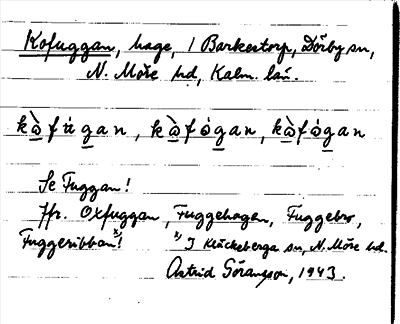 Kofuggan, hage, i Barkestorp, Dörby sn,
N. Möre hd, Kalm. län.
kò̱fùg̱an, kò̱fóg̱an, kò̱fóg̱an
Se Fuggan!
Jfr. Oxfuggan, Fuggehagen, Fuggebro,
Fuggeribban!ˣ⁾ ˣ⁾ I Kläckeberga sn, N. Möre hd.
Astrid Göransson, 1943.